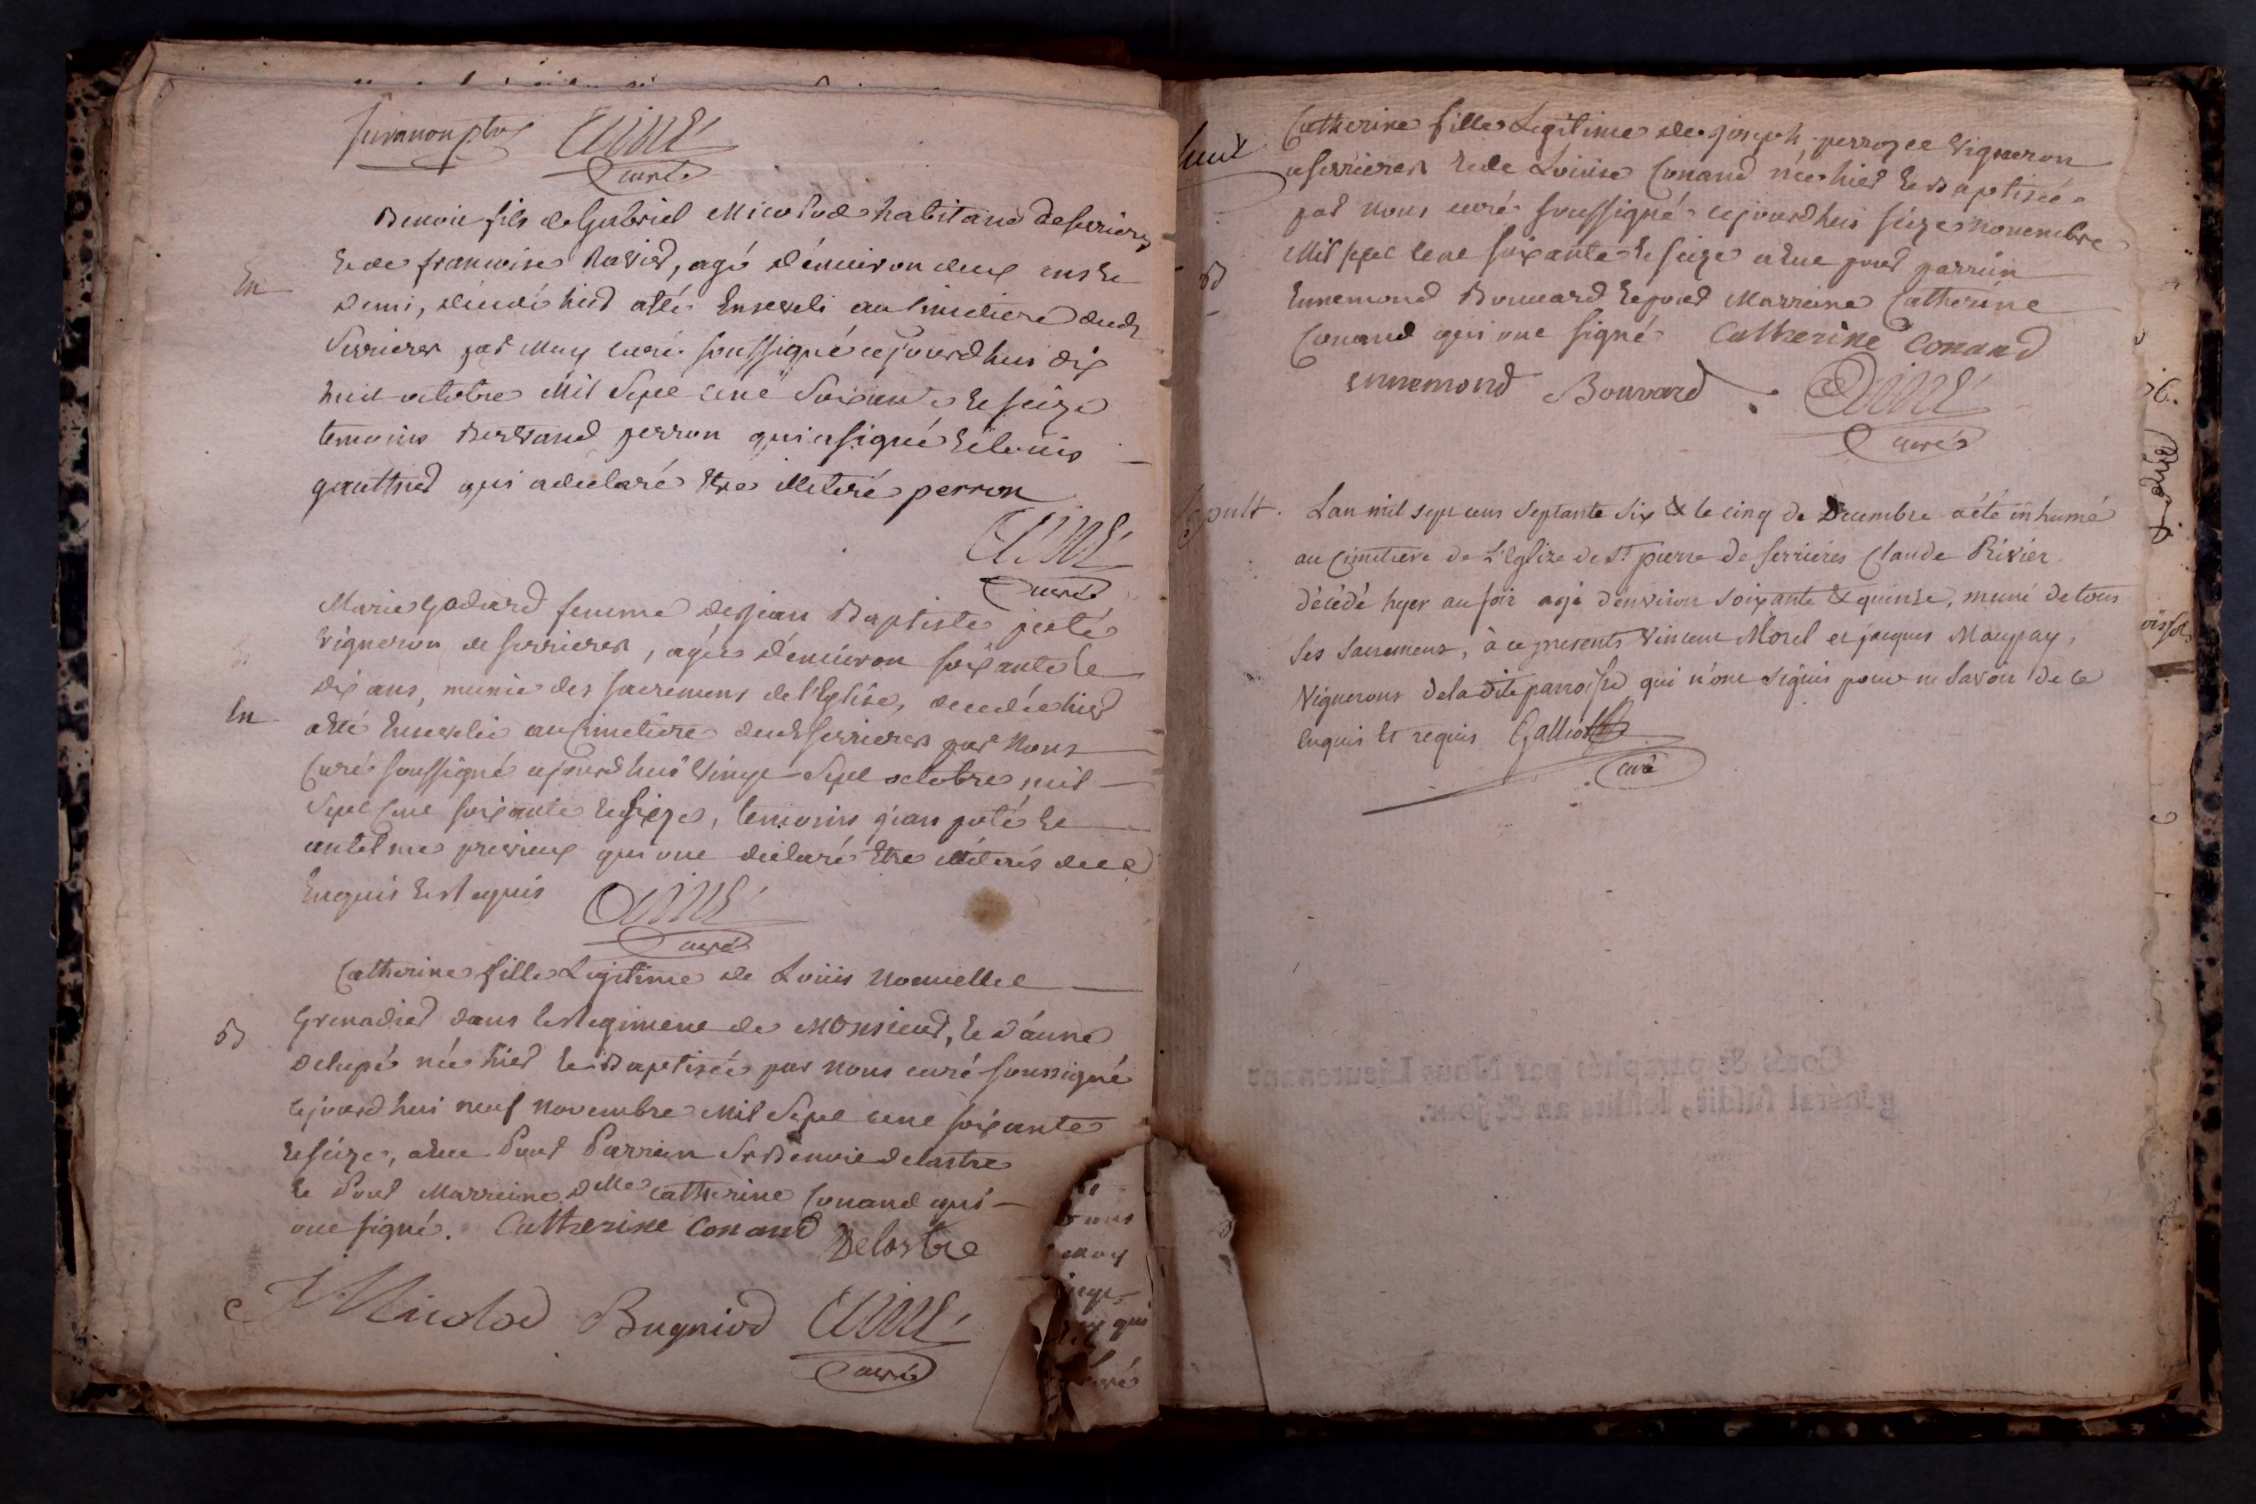 curé
Benoit fils de Gabriel Micolod habitant de Serrieres
En
et de francoise Ravier, agé d'environ deux ans et
demi, décédé hier a été Enseveli au Cimetiere dud
Serrieres par Moy curé soussigné cejourdhui dix
huit octobre Mil Sept cent Soixante et seize
temoins Bertrand perron qui a signé et Louis
gauthier qui a declaré Etre illiteré perron
curé
Marie Godard femme de jean Baptiste
vigneron de serrieres, agée d'environ soixante et
dix ans, munie des sacremens de l'Eglise, decedée hier
En
a été Ensevelie au Cimetiere dud Serrieres par Nous
Curé soussigné cejourdhui vingt Sept octobre mil
Sept Cent soixante et seize, temoins jean et
antelme qui ont declaré Etre illiterés de ce
Enquis et Requis
curé
Catherine fille Legitime de Louis
B
Grenadier dans le Regiment de Monsieur, et d'anne
née hier et Baptisée par Nous curé soussigné
cejourdhui neuf Novembre Mil Sept cent soixante
et seize, a eue Pour Parrein Sr Benoit Delastre
et Pour Marreine Dlle Catherine Conand qui
ont signé. Catherine Conand
Delastre
Micolod Bugniod
curé
nous
Moy
qui
curé
Catherine fille Legitime de joseph vigneron
a serrieres et de Louise Conand née hier et Baptisée
par Nous curé soussigné cejourdhui seize Novembre
B
Mil sept cent soixante et seize a eue pour parrein
Ennemond Bouvard et pour Marreine Catherine
Conand qui ont signé Catherine Conand
Ennemond Bouvard
curé
Sepult. Lan mil sept cens Septante Six & le cinq de Decembre a été inhumé
au Cimetiere de L'Eglize de St pierre de Serrieres Claude Rivier
décédé hyer au soir agé d'environ soixante & quinse, muni de tous
Ses Sacremens, à ce presents Vincent Morel et jacques Maupay,
Vignerons de la dite parroisse qui n'ont signés pour ne Savoir de ce
Enquis et requis Galliot
curé
Coté & paraphé par Nous Lieutenant
général susdit, lesdits an & jour.